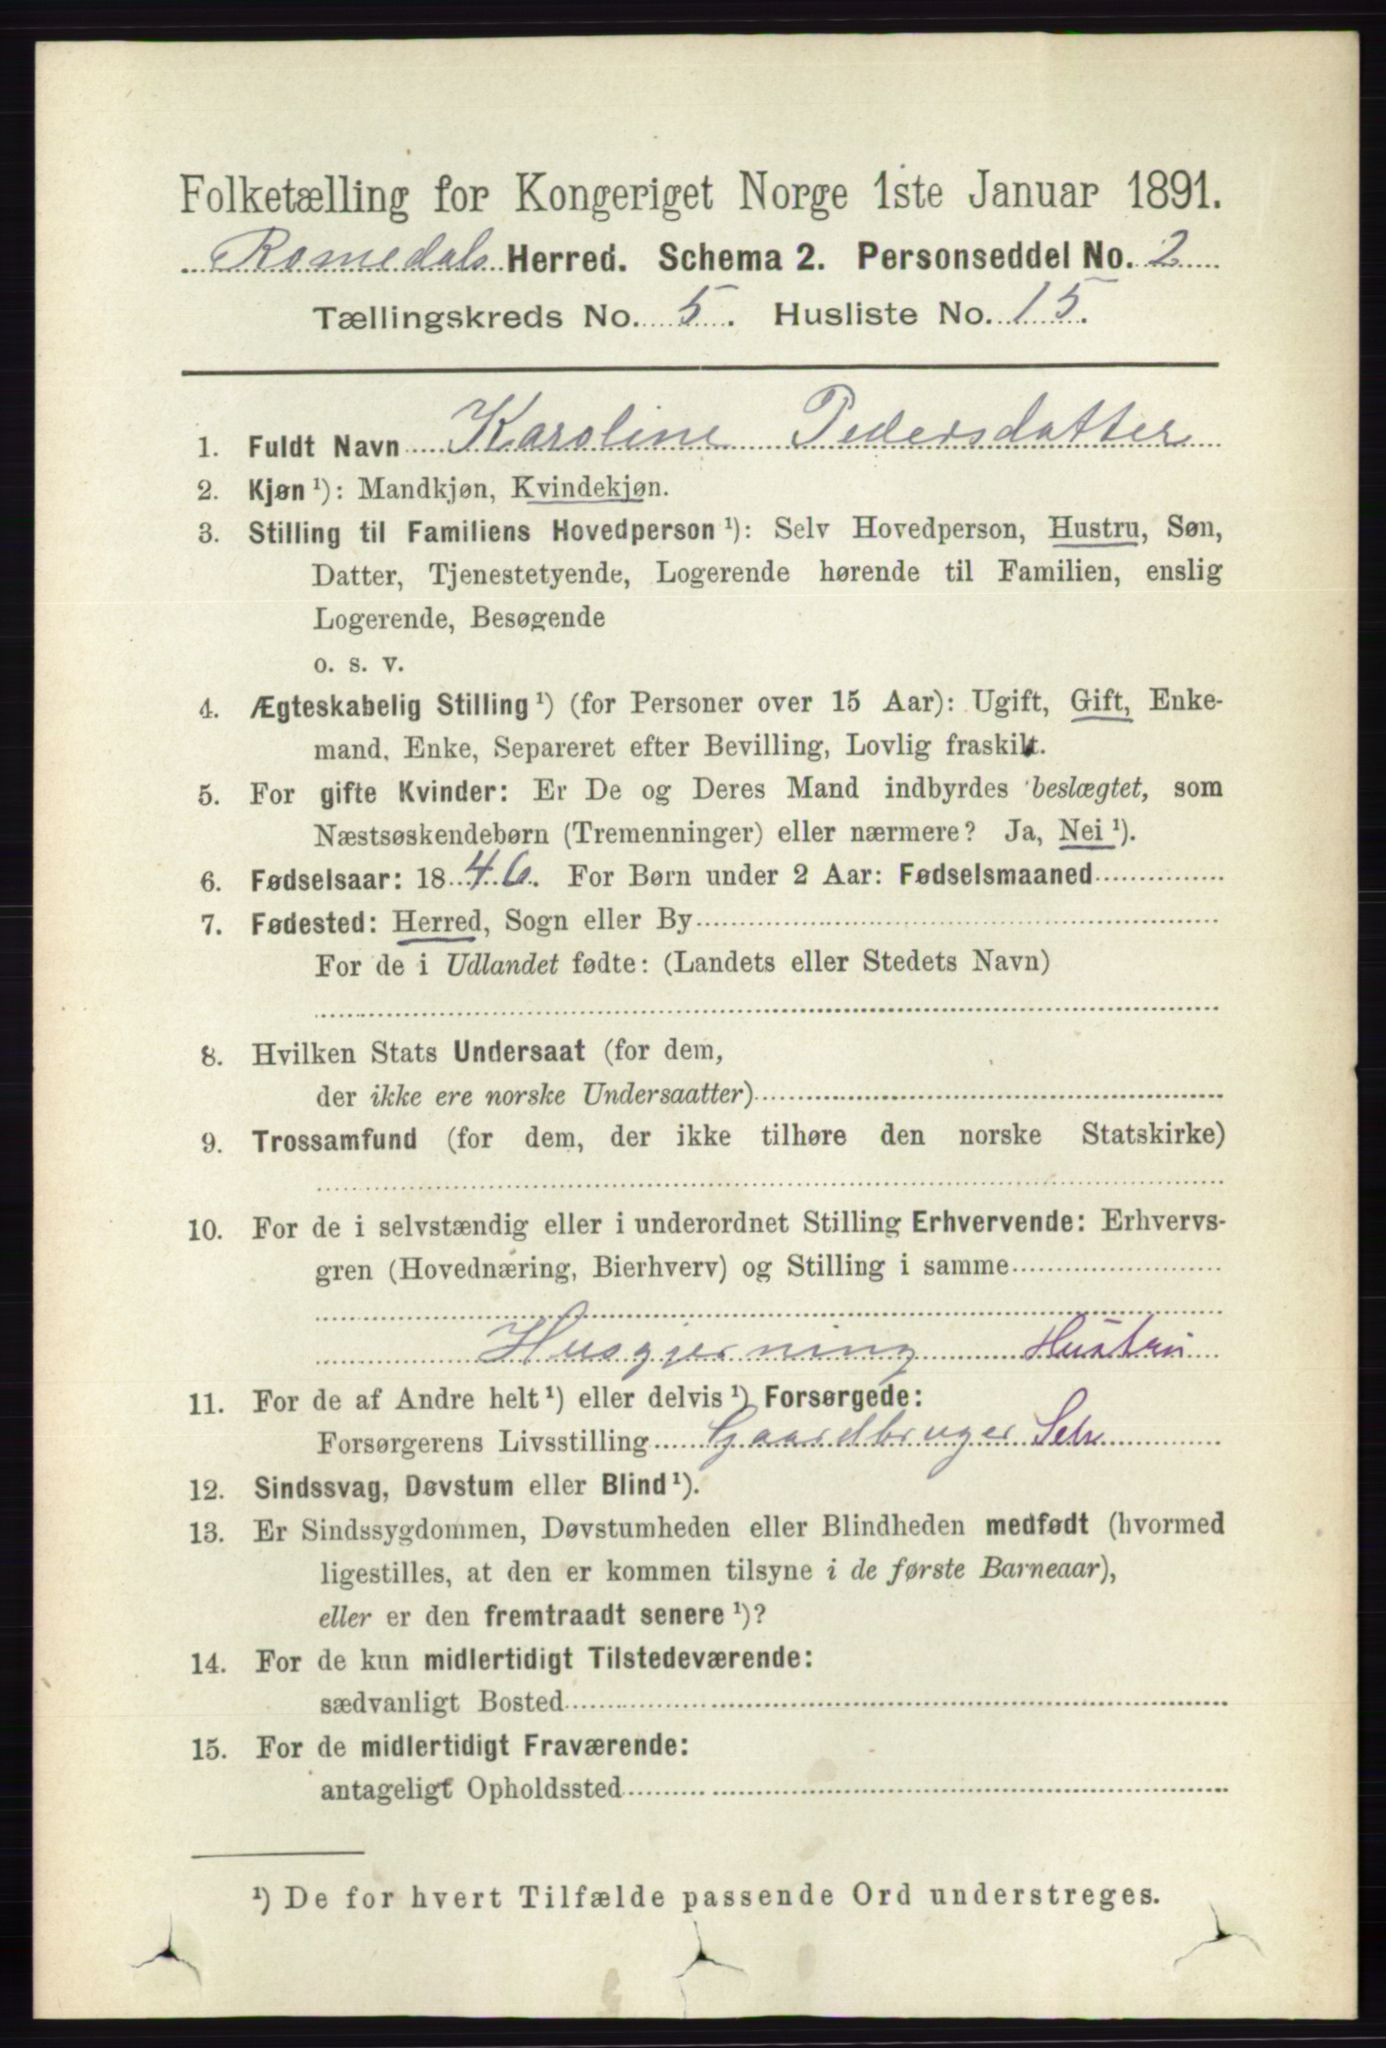 Folketælling for Kongeriget Norge 1ste Januar 1891.
Romedals Herred. Schema 2. Personseddel No. 2
Tællingskreds No. 5. Husliste No. 15.
1. Fuldt Navn Karoline Pedersdatter
2. Kjøn ¹): Mandkjøn, Kvindekjøn.
3. Stilling til Familiens Hovedperson ¹): Selv Hovedperson, Hustru, Søn,
Datter, Tjenestetyende, Logerende hørende til Familien, enslig
Logerende, Besøgende
o. s. v.
4. Ægteskabelig Stilling ¹) (for Personer over 15 Aar): Ugift, Gift, Enke-
mand, Enke, Separeret efter Bevilling, Lovlig fraskilt.
5. For gifte Kvinder: Er De og Deres Mand indbyrdes beslægtet, som
Næstsøskendebørn (Tremenninger) eller nærmere? Ja, Nei ¹).
6. Fødselsaar: 1846. For Børn under 2 Aar: Fødselsmaaned
7. Fødested: Herred, Sogn eller By
For de i Udlandet fødte: (Landets eller Stedets Navn)
8. Hvilken Stats Undersaat (for dem,
der ikke ere norske Undersaatter)
9. Trossamfund (for dem, der ikke tilhøre den norske Statskirke)
10. For de i selvstændig eller i underordnet Stilling Erhvervende: Erhvervs-
gren (Hovednæring, Bierhverv) og Stilling i samme
Husgjerning Hustru
11. For de af Andre helt ¹) eller delvis ¹) Forsørgede:
Forsørgerens Livsstilling Gaardbruger Selv
12. Sindssvag, Døvstum eller Blind ¹).
13. Er Sindssygdommen, Døvstumheden eller Blindheden medfødt (hvormed
ligestilles, at den er kommen tilsyne i de første Barneaar),
eller er den fremtraadt senere ¹)?
14. For de kun midlertidigt Tilstedeværende:
sædvanligt Bosted
15. For de midlertidigt Fraværende:
antageligt Opholdssted
¹) De for hvert Tilfælde passende Ord understreges.